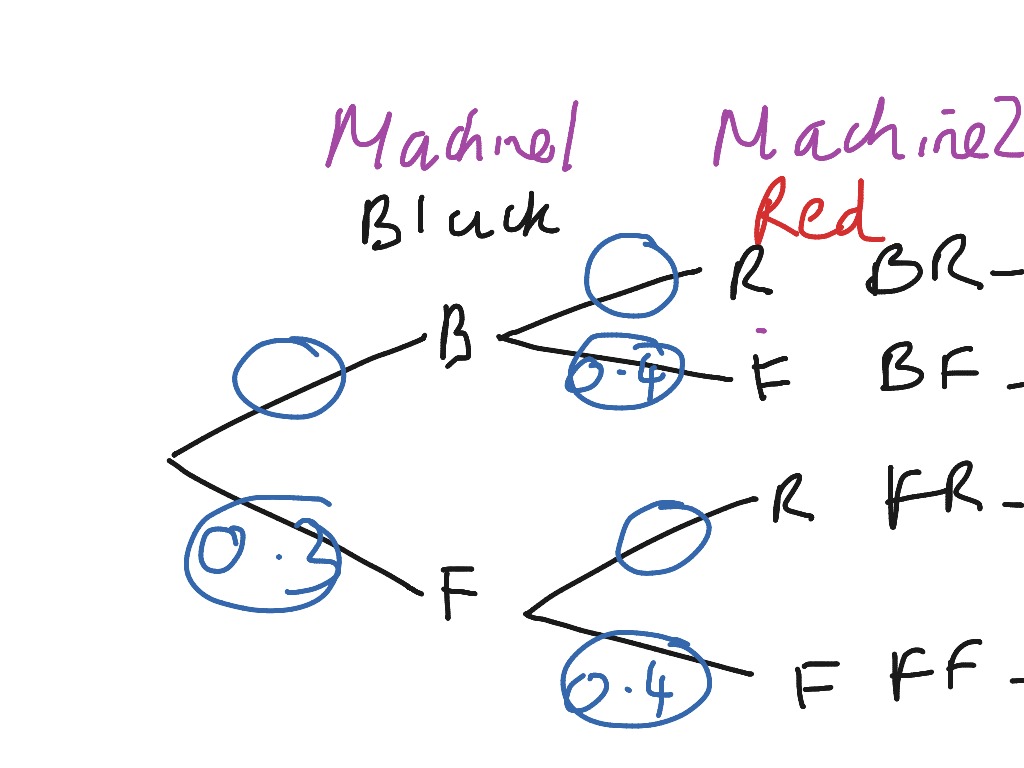 Machine1 Machine2
Black Red
R BR -
B
0.4 F BF -
R FR -
0.2
F
0.4 F FF -